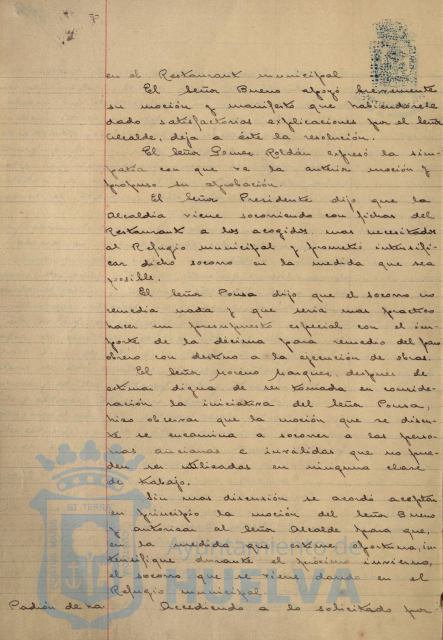 en el Restaurant municipal
El Señor Bueno apoyó brevemente
su moción y manifestó que habiéndosele
dado satisfactorias explicaciones por el Señor
Alcalde, deja a éste la resolución.
El Señor Gomez Roldán expresó la sim-
patia con que ve la anterior moción y
propuso su aprobación.
El Señor Presidente dijo que la
Alcaldía viene socorriendo con fichas del
Restaurant a los acogidos mas necesitados
al Refugio municipal y prometió intensifi-
car dicho socorro en la medida que sea
posible.
El Señor Pousa dijo que el socorro no
remedia nada y que seria mas practico
hacer un presupuesto especial con el im-
porte de la decima para remedio del paro
obrero con destino a la ejecución de obras.
El Señor Moreno Marquez, despues de
estimar digna de ser tomada en conside-
ración la iniciativa del Señor Pousa,
hizo observar que la moción que se discu-
te se encamina a socorrer a las perso-
nas ancianas e inválidas que no pue-
den ser utilizadas en ninguna clase
de trabajo.
Sin mas discusión se acordó aceptar
en principio la moción del Señor Bueno
y autorizar al Señor Alcalde para que,
en la medida que estime oportuna, in-
tensifique durante el próximo invierno,
el socorro que se viene dando en el
Refugio municipal.
Padrón de ra- Accediendo a lo solicitado por
Ayuntamiento de
HUELVA